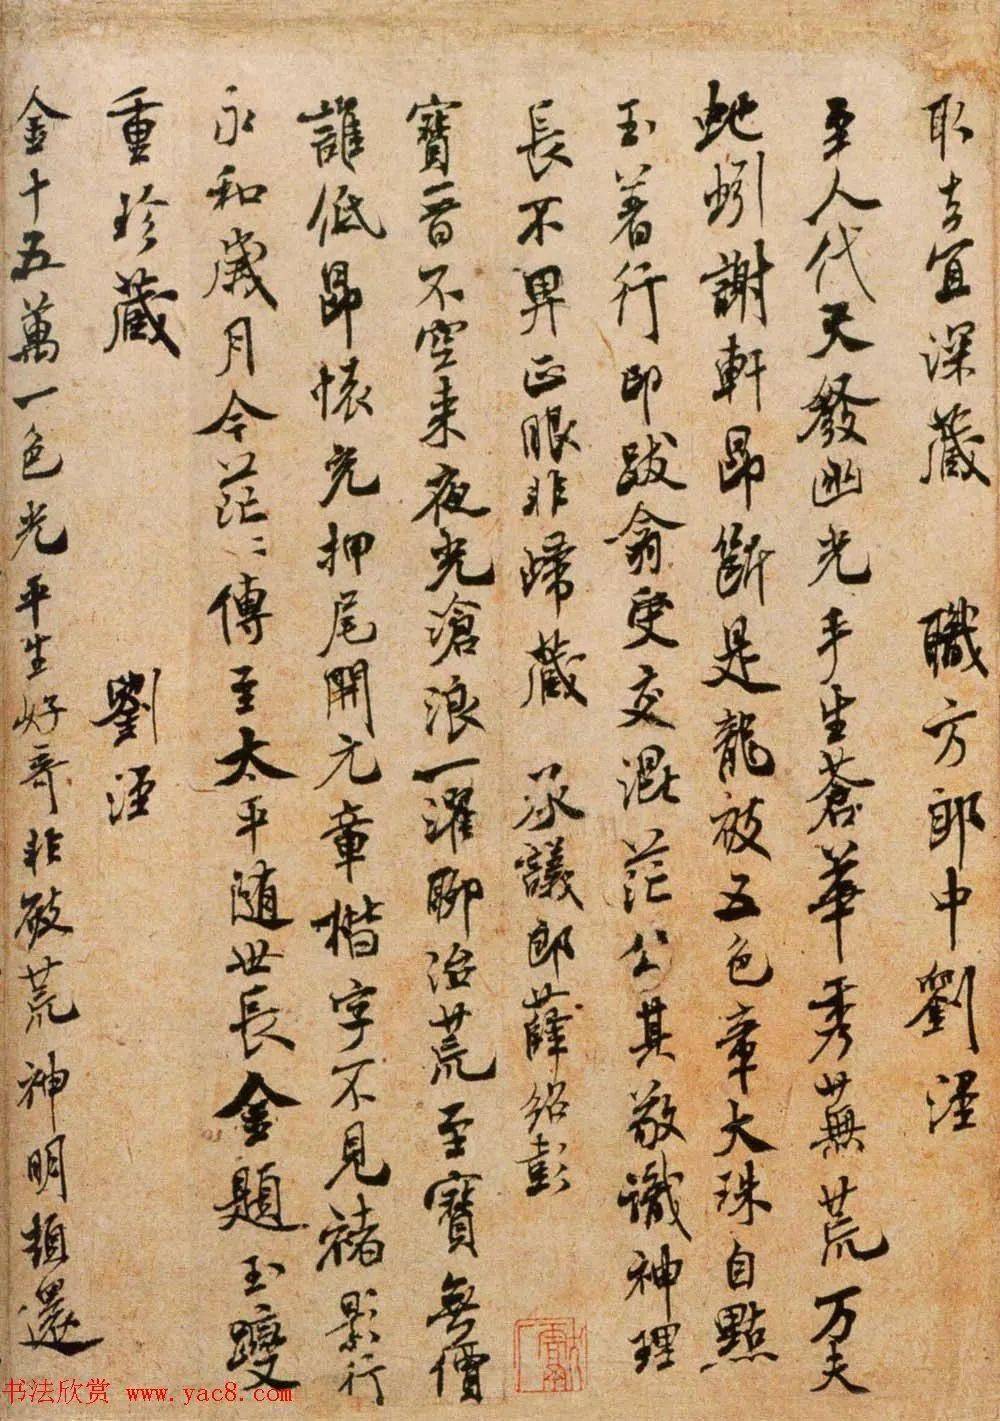 取去宜深藏 職方郎中劉涇
至人代天發幽光手生蒼華秀蕪荒万夫
虵蚓謝軒昂斷是龍被五色章大珠自點
玉著行印跋翕更交混茫公其敬識神理
長不畀正眼非歸藏 承議郎薛紹彭
寶晉不空来夜光滄浪一濯聊治荒至寶無價
誰低昂懐充押尾開元章楷字不見褚影行
永和歲月今茫〻傳至太平随世長金題玉躞
重珍藏 劉涇
金十五萬一色光平生好奇非破荒神明頓還
书法欣赏 www.yac8.com